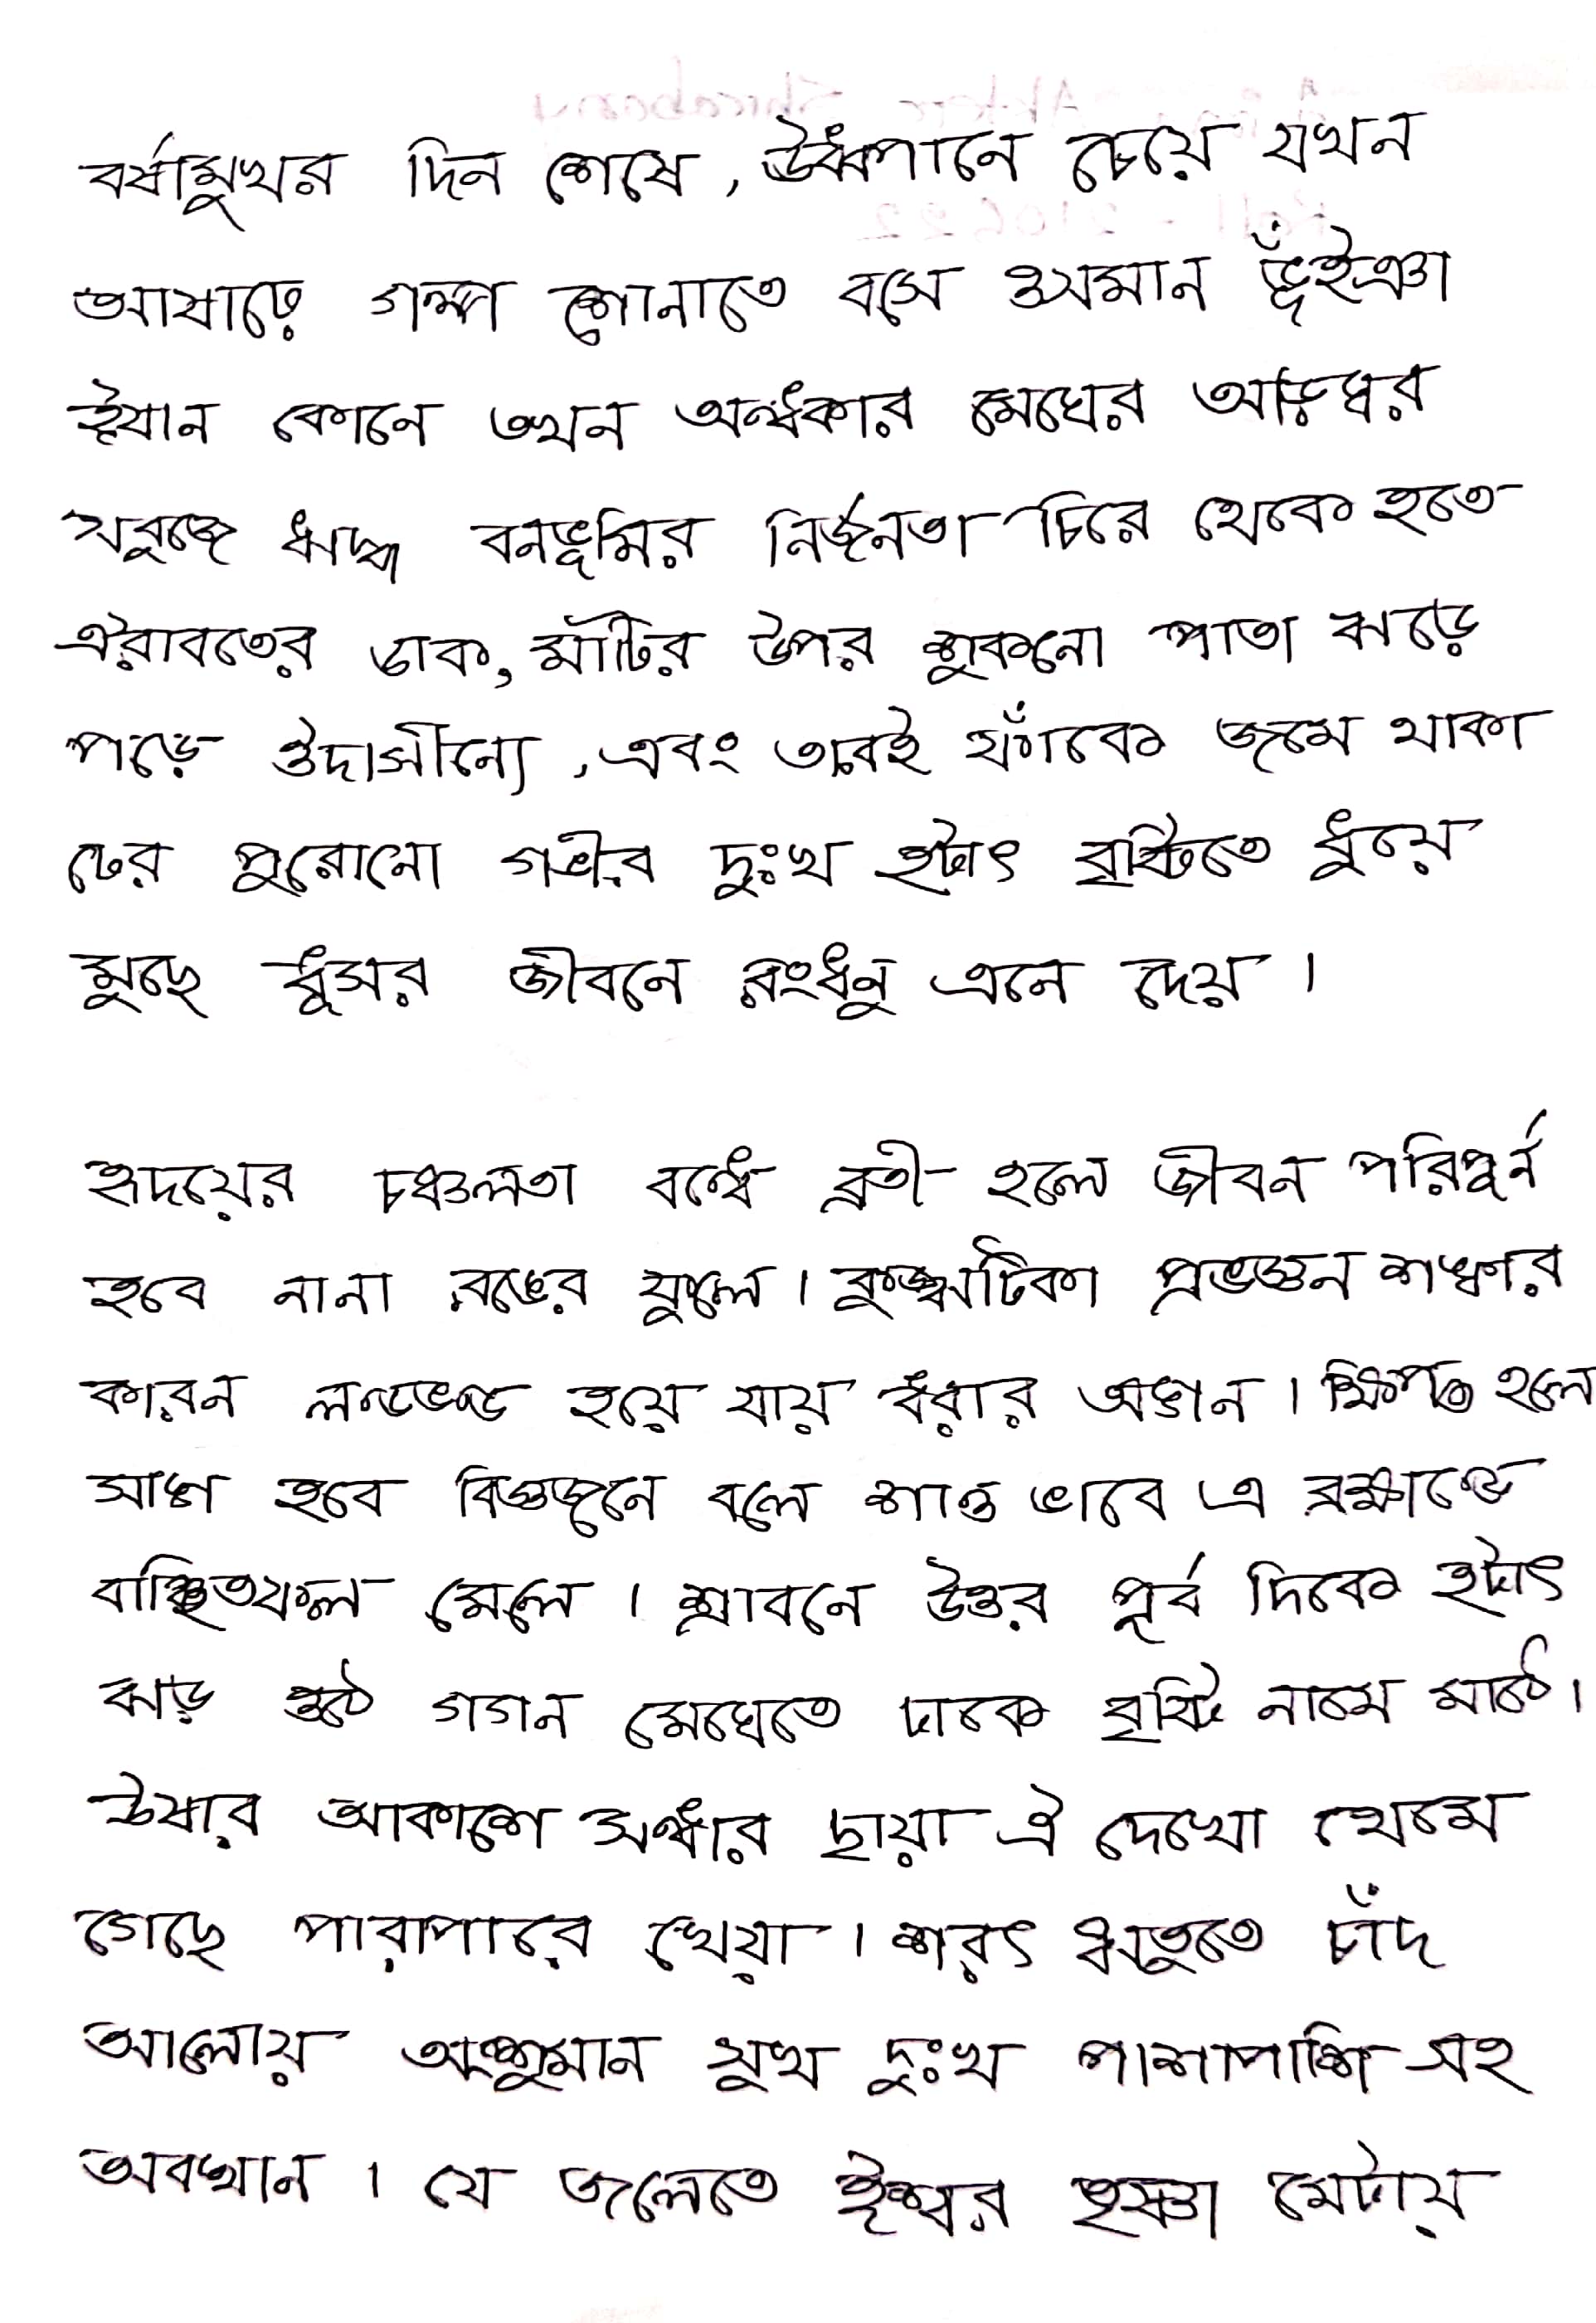 বর্ষামুখর দিন শেষে, উর্ধ্বপানে চেয়ে যখন
আষাঢ়ে গল্প শোনাতে বসে ওসমান ভূঁইঞা
ঈষান কোনে তখন অন্ধকার মেঘের আড়ম্বর
সবুজে ঋদ্ধ বনভূমির নির্জনতা চিরে থেকে হতে
ঐরাবতের ডাক, মাটির উপর শুকনো পাতা ঝড়ে
পড়ে ঔদাসীন্যে, এবং তারই ফাঁকে জমে থাকা
ঢের পুরোনো গভীর দুঃখ হটাৎ বৃষ্টিতে ধুয়ে
মুছে ধুসর জীবনে রংধনু এনে দেয়।
হৃদয়ের চঞ্চলতা বন্ধে ব্রতী হলে জীবন পরিপূর্ন
হবে নানা রঙের ফুলে। কুজ্ঝটিকা প্রভঞ্জন শঙ্কার
কারন লণ্ডভণ্ড হয়ে যায় ধরার অঙ্গন। ক্ষিপ্ত হলে
সাঙ্গ হবে বিজ্ঞজনে বলে শান্ত ভাবে এ ব্রহ্মাণ্ডে
বাঞ্ছিতফল মেলে। শ্রাবনে উত্তর পূর্ব দিকে হটাৎ
ঝড় ওঠে গগন মেঘেতে ঢাকে বৃষ্টি নামে মাঠে।
ঊষার আকাশে সন্ধার ছায়া ঐ দেখো থেমে
গেছে পারাপারে খেয়া। শরৎ ঋতুতে চাঁদ
আলোয় অংশুমান সুখ দুঃখ পাশাপাশি সহ
অবস্থান। যে জলেতে ঈশ্বর তৃষ্ণা মেটায়